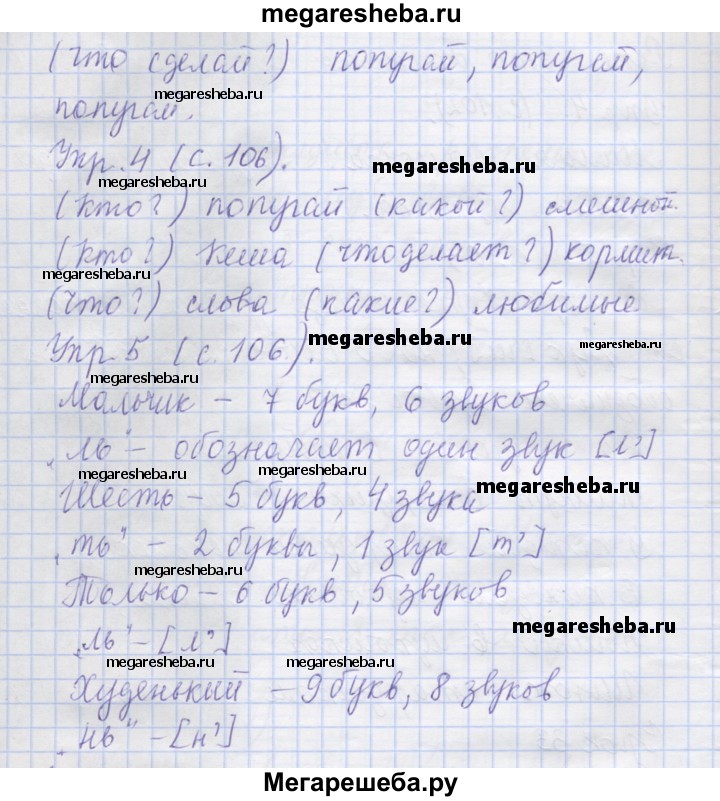 megaresheba.ru
(что сделай?) попугай, попугай,
megaresheba.ru
попугай.
Упр. 4 (с. 106).
megaresheba.ru
megaresheba.ru
(кто?) попугай (какой?) смешной.
megaresheba.ru
(кто?) Кеша (что делает?) кормит.
megaresheba.ru
(что?) слова (какие?) любимые
Упр. 5 (с. 106).
megaresheba.ru
megaresheba.ru
megaresheba.ru
Мальчик – 7 букв, 6 звуков
megaresheba.ru
„ль" – обозначает один звук [л']
megaresheba.ru
megaresheba.ru
megaresheba.ru
Шесть – 5 букв, 4 звука
„ть" – 2 буквы, 1 звук [т']
megaresheba.ru
Только – 6 букв, 5 звуков
megaresheba.ru
„ль" – [л']
megaresheba.ru
megaresheba.ru
Худенький – 9 букв, 8 звуков
megaresheba.ru
„нь" – [н']
Мегарешеба.ру